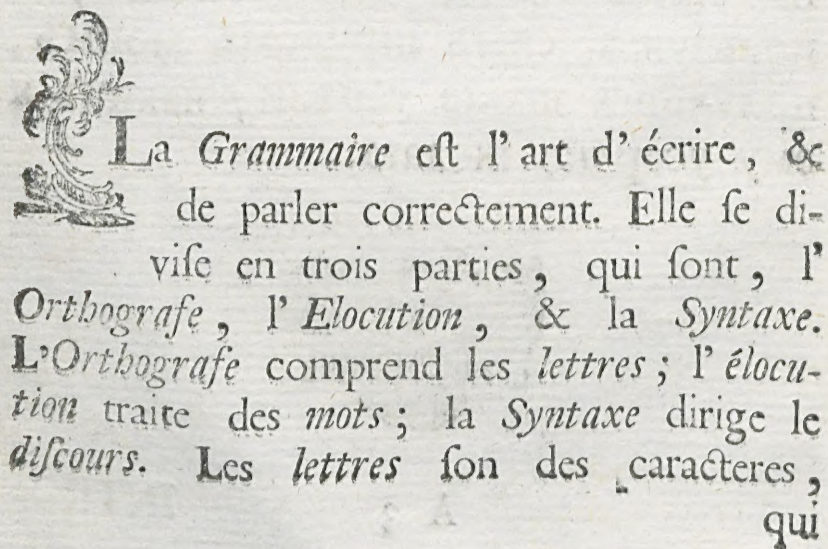 La Grammaire eſt l' art d' écrire, &
de parler correctement. Elle ſe di-
viſe en trois parties, qui ſont, l'
Orthografe, l' Elocution, & la Syntaxe.
L'Orthografe comprend les lettres; l' élocu-
tion traite des mots; la Syntaxe dirige le
diſcours. Les lettres ſon des caracteres,
qui